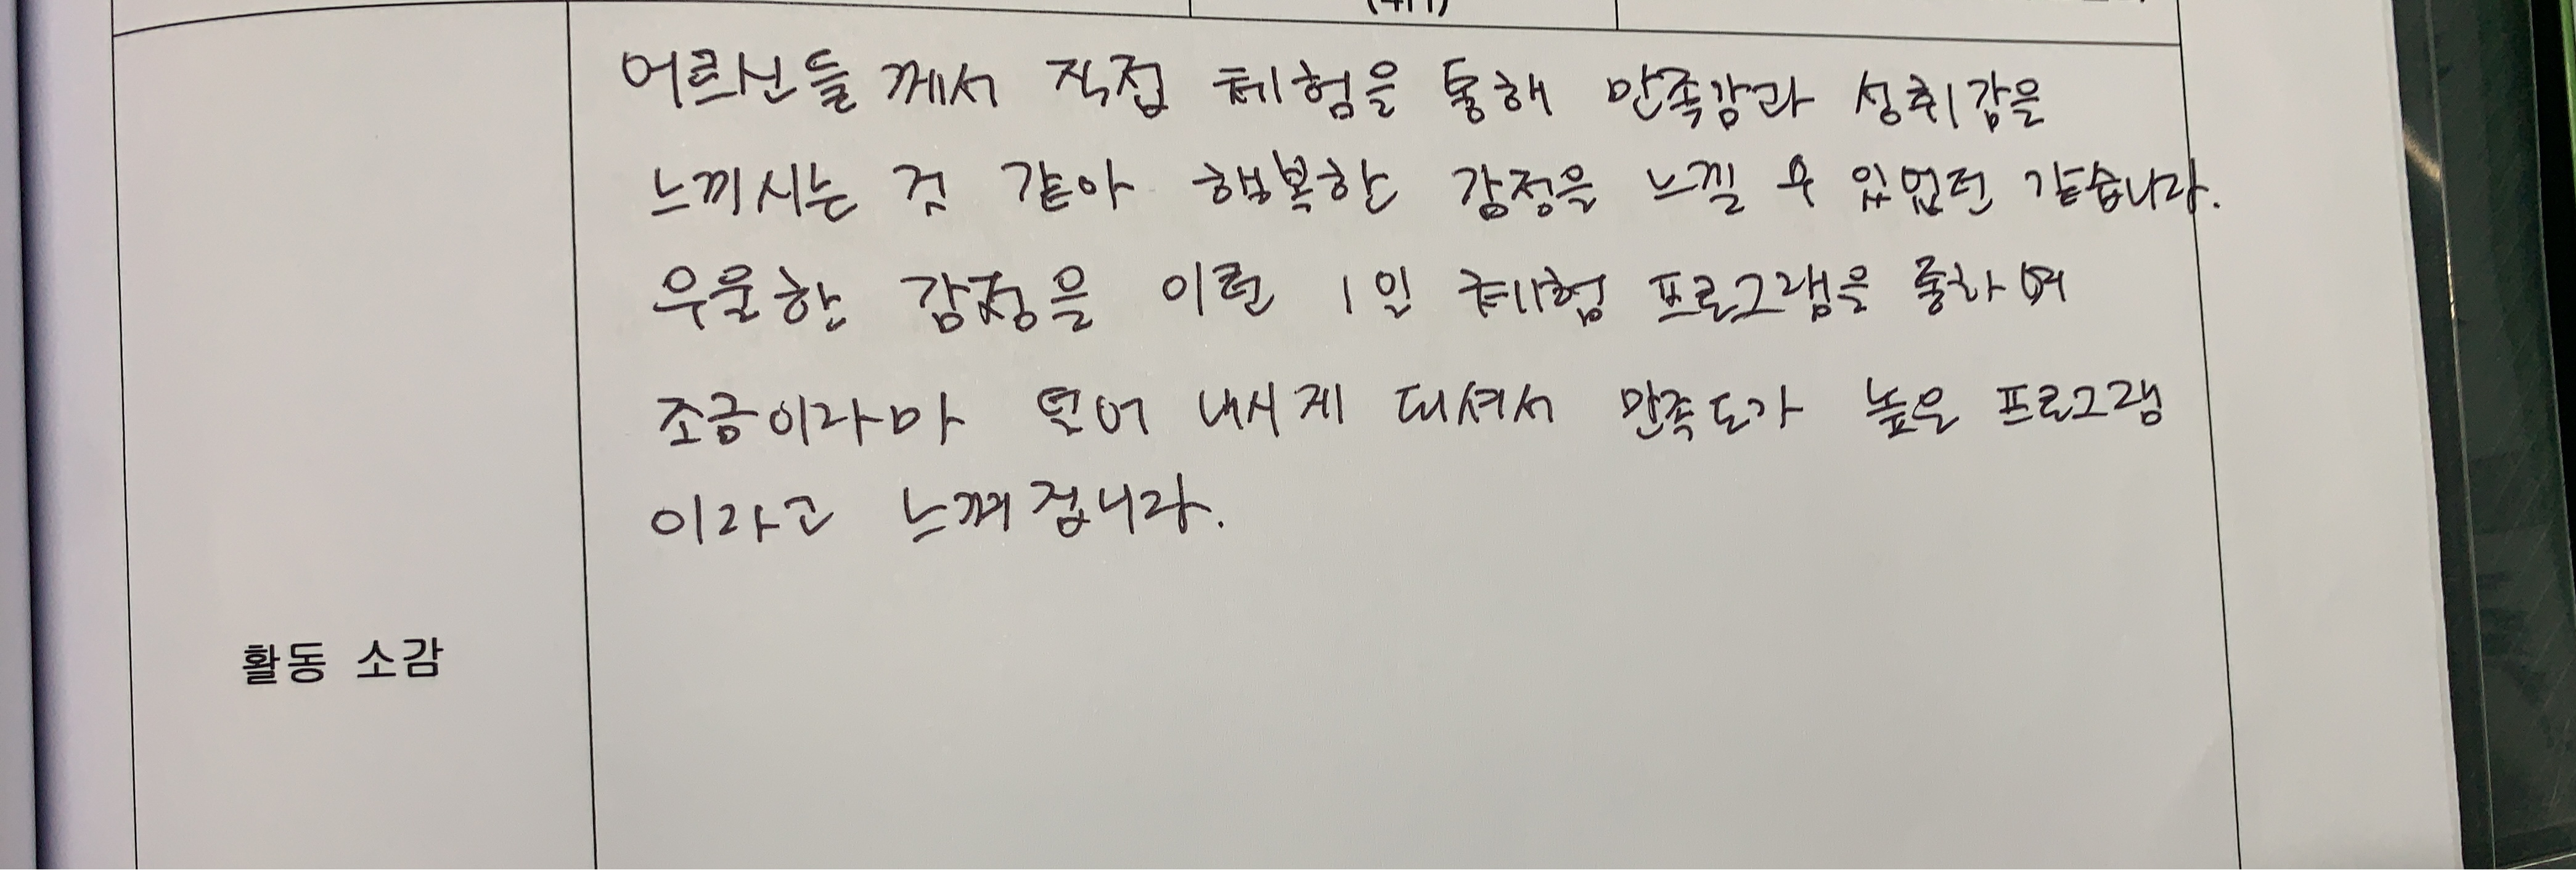 어르신들 께서 직접 체험을 통해 만족감과 성취감을
느끼시는 점 같아 행복한 감정을 느낄 수 있었던 같습니다.
우울한 감정을 이런 1일 체험 프로그램을 통하여
조금이라마 덜어 내시게 되셔서 만족도가 높은 프로그램
이라고 느껴집니다.
활동 소감